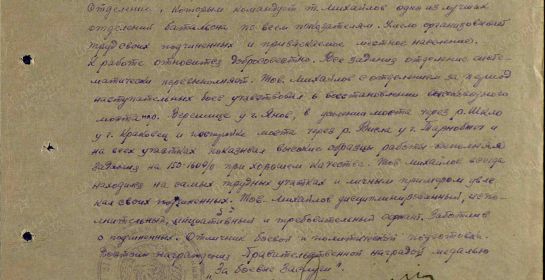 Отделение, которым командует т. Михайлов одно из лучших
отделений батальона по всем показателям. Умело организовывает
труд своих подчиненных и привлекаемое местное население.
К работе относится добросовестно. Все задания отделение систе-
матически перевыполняет. Тов. Михайлов с отделением за период
наступательных боев участвовал в восстановлении
моста через Верещице у г. Янов, в усилении моста через р. Шкло
у г. Краковец и постройке моста через р. Висла у г. Тарнобжег и
на всех участках показывал высокие образцы работы выполняя
задания на 150-160% при хорошем качестве. Тов. Михайлов всегда
находился на самых трудных участках и личным примером увле-
кал своих подчиненных. Тов. Михайлов дисциплинированный, испо-
лнительный, инициативный и требовательный сержант. Заботлив
о подчиненных. Отличник боевой и политической подготовки.
Достоин награждения Правительственной наградой медалью
"За боевые заслуги".